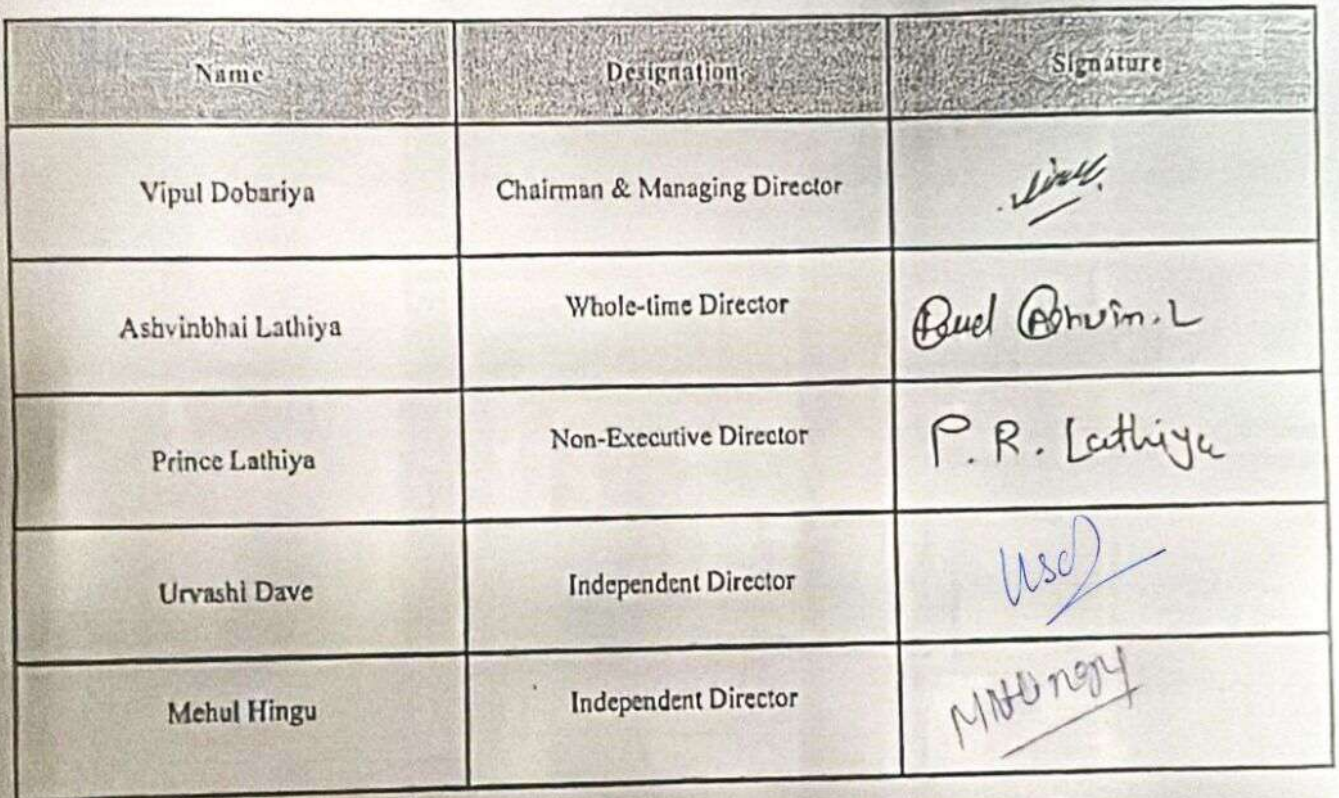 Name Designation Signature
Vipul Dobariya Chairman & Managing Director
Ashvinbhai Lathiya Whole-time Director Ashvin.L
Prince Lathiya Non-Executive Director P.R. Lathiya
Urvashi Dave Independent Director
Mehul Hingu Independent Director